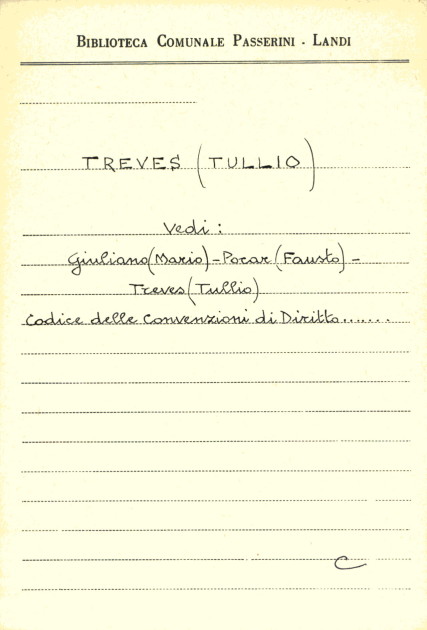 BIBLIOTECA COMUNALE PASSERINI - LANDI
TREVES (TULLIO)
Vedi :
Giuliano (Mario) - Pocar (Fausto) -
Treves (Tullio)
Codice delle Convenzioni di Diritto.......
C